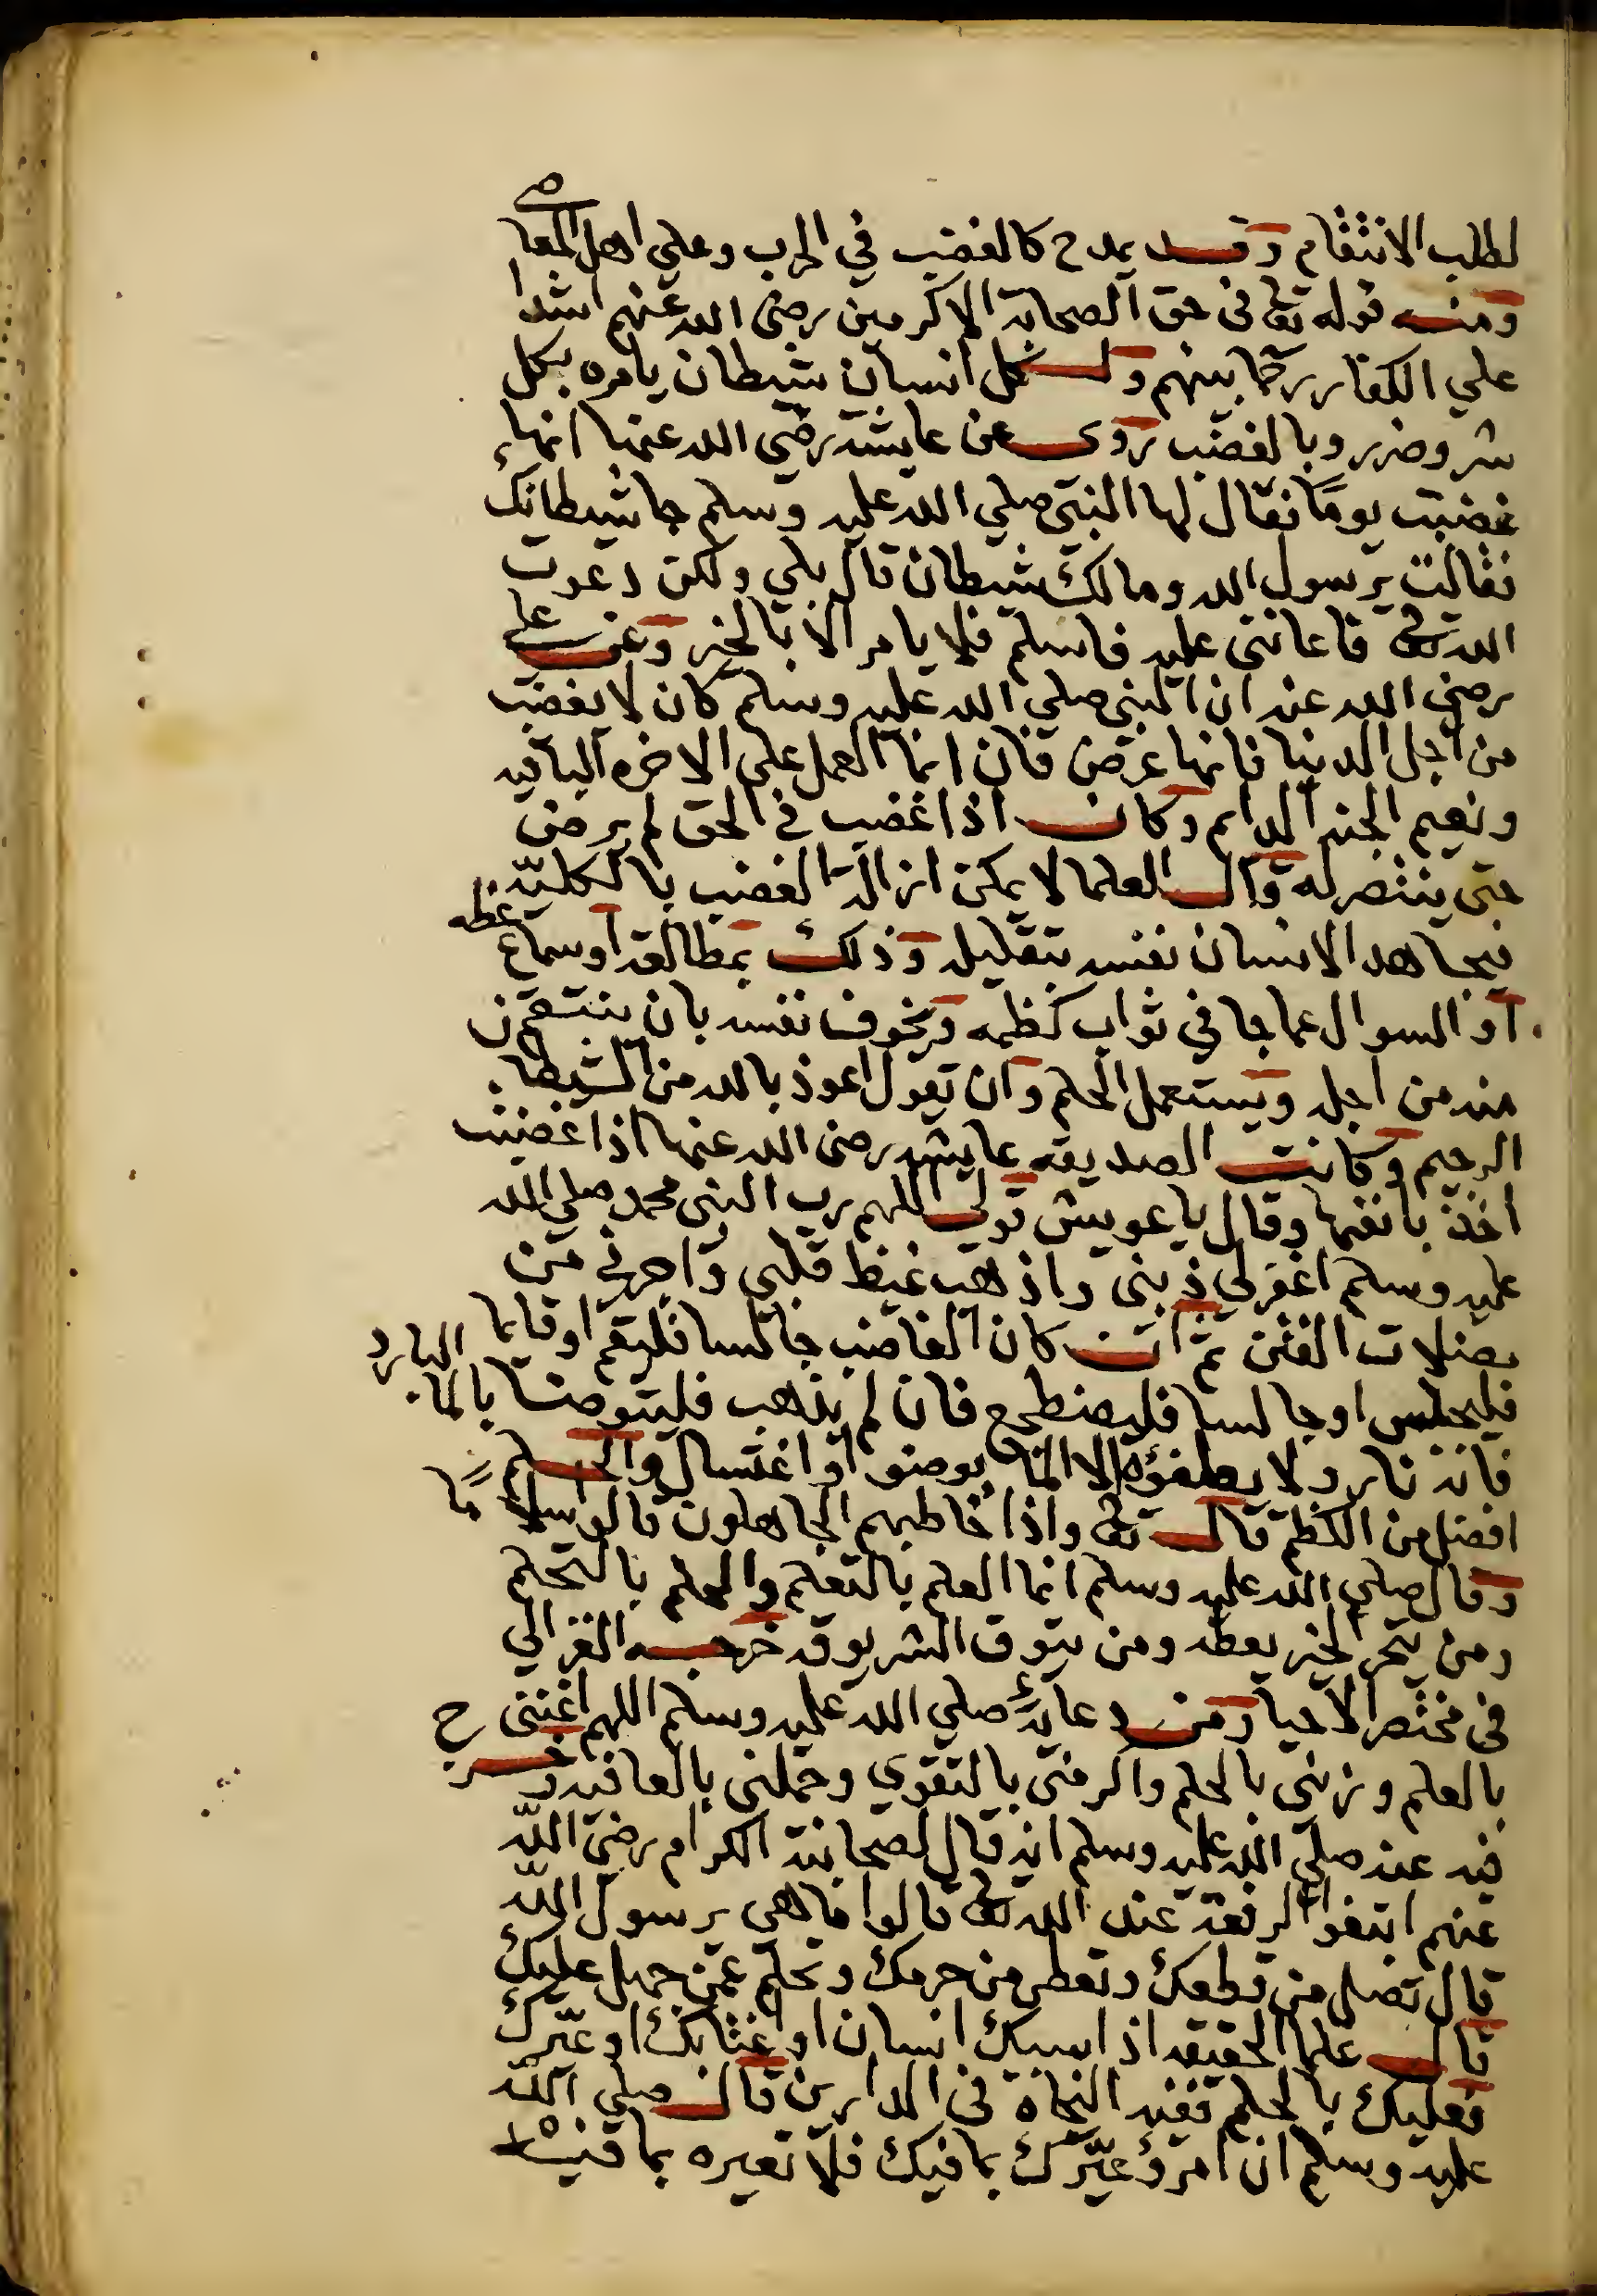 لطلب الانتقام وقد يمدح كالغضب في الحرب وعلي اهل المعاصي
ومنه قوله تعالى في حق الصحابة الاكرمين رضي الله عنهم اشدا
علي الكفار رحما بينهم ولكل انسان شيطان يامره بكل
شر وضرر وبالغضب روى عن عايشة رضي الله عنها انها
غضبت يومًا فقال لها النبي صلي الله عليه وسلم جا شيطانك
فقالت يرسول الله ومالك شيطان قال بلي ولكن دعوت
الله تعالى فاعانني عليه فاسلم فلا يامر الا بالخير وعن علي
رضي الله عنه ان النبي صلي الله عليه وسلم كان لا يغضب
من اجل الدنيا فانها عرض فان انما العمل علي الاخره الباقيه
ونعيم الجنه الدايم وكان اذا غضب في الحق لم يرض
حتى ينتصر له وقال العلما لا يمكن ازالة الغضب بالكليّة
فيجاهد الانسان نفسه بتقليله وذلك بمطالعة او سماع عظه
او السوال عما جا في ثواب كظمه ويخوف نفسه بان ينتقم
منه من اجله ويستعمل الحلم وان يقول اعوذ بالله من الشيطان
الرجيم وكانت الصديقه عايشه رضي الله عنها اذا غضبت
اخذ بانفها وقال يا عويش قولي اللهم رب النبي محمد صلي الله
عليه وسلم اغفر لي ذنبي واذهب غيظ قلبي واجرني من
مضلات الفتن ثم ان كان الغاضب جالسا فليقم او قايما
فليجلس او جالسا فليضطجع فان لم يذهب فليتوضا بالما البارد
فانه نار ولا يطفؤه الا الما بوضو او اغتسال والحلم
افضل من الكظم قال تعالى واذا خاطبهم الجاهلون قالو سلامًا
وقال صلي الله عليه وسلم انما العلم بالتعلم والحلم بالتحلم
ومن يتحر الخير يعطه ومن يتوق الشر يوقه خرجه الغزالي
في مختصر الاحيا ومن دعايه صلي الله عليه وسلم اللهم اغنني
بالعلم وزيني بالحلم واكرمني بالتقوي وجملني بالعافيه وخرج
فيه عنه صلي الله عليه وسلم انه قال لصحابته الكرام رضي الله
عنهم ابتغوا الرفعة عند الله تعالى قالوا ما هي يرسول الله
قال تصل من قطعك وتعط من حرمك وتحلم عمن جهل عليك
قال علما الحقيقه اذا سبك انسان او اغتابك او عيّرك
فعليك بالحلم ففيه النجاة في الدارين قال صلي الله
عليه وسلم ان امرؤ عيّرك بما فيك فلا تعيره بما فيه